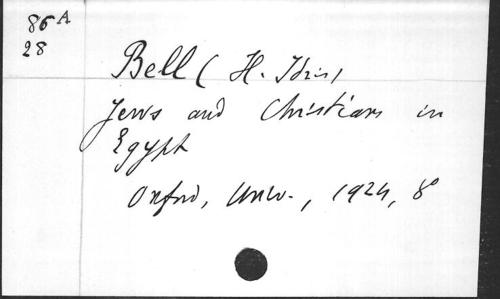 86 A
28
Bell (H. Idris)
Jews and Christians in
Egypt
Oxford, Univ., 1924, 8°